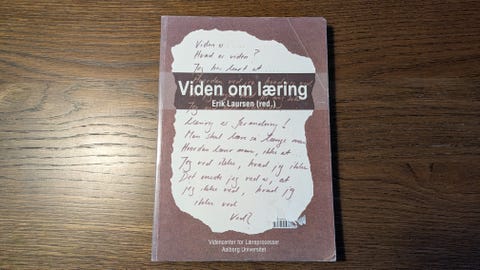 Viden er
Hvad er viden?
Jeg har lært at
Viden om læring
Erik Laursen (red.)
Læring er forandring!
Man skal lære så længe man
Hvordan lærer man, ikke at
Jeg ved ikke, hvad jg ikke
Det eneste jeg ved er, at
jeg ikke ved, hvad jg
ikke ved
Videncenter for Læreprocesser
Aalborg Universitet